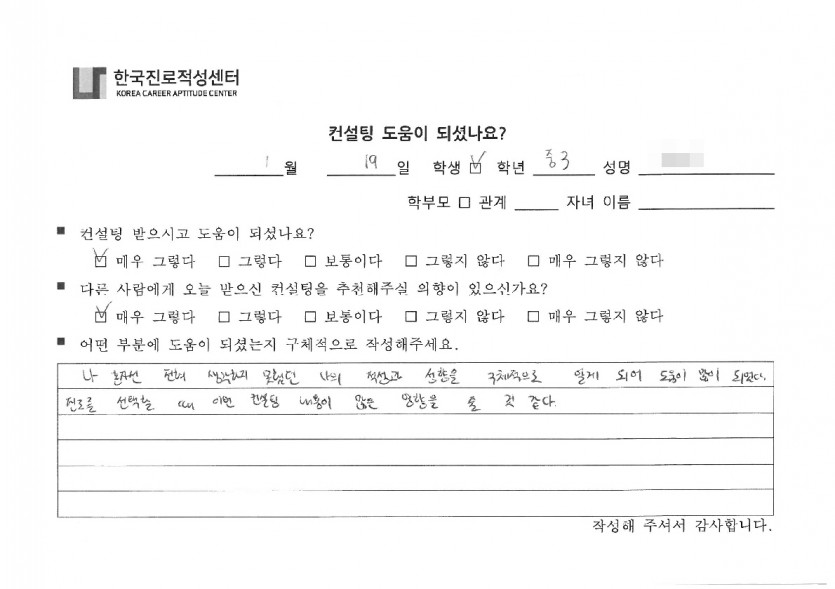 한국진로적성센터
KOREA CAREER APTITUDE CENTER
컨설팅 도움이 되셨나요?
1 월 19 일 학생 ☑ 학년 중3 성명
학부모 □ 관계 자녀 이름
■ 컨설팅 받으시고 도움이 되셨나요?
☑ 매우 그렇다 □ 그렇다 □ 보통이다 □ 그렇지 않다 □ 매우 그렇지 않다
■ 다른 사람에게 오늘 받으신 컨설팅을 추천해주실 의향이 있으신가요?
☑ 매우 그렇다 □ 그렇다 □ 보통이다 □ 그렇지 않다 □ 매우 그렇지 않다
■ 어떤 부분에 도움이 되셨는지 구체적으로 작성해주세요.
나 혼자선 전혀 생각하지 못했던 나의 적성과 성향을 구체적으로 알게 되어 도움이 많이 되었다.
진로를 선택할 때 이번 컨설팅 내용이 많은 영향을 줄 것 같다.
작성해 주셔서 감사합니다.